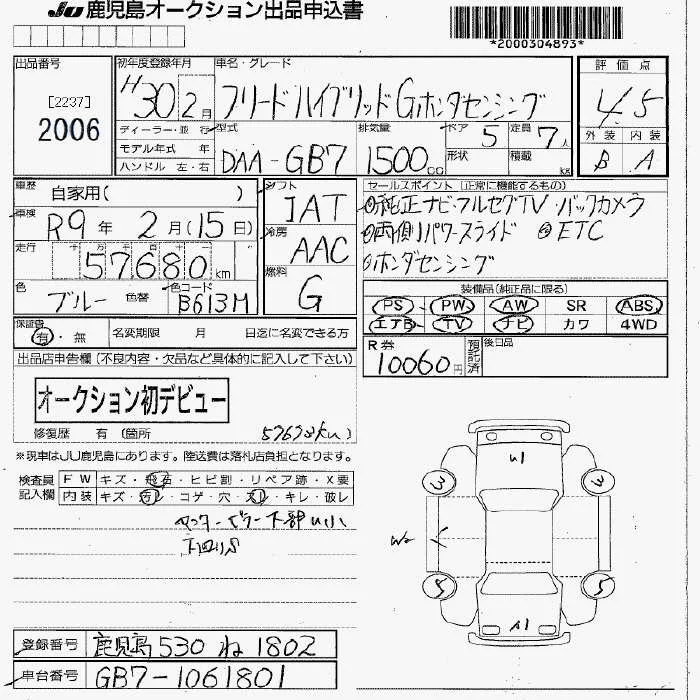 JU 鹿児島オークション出品申込書
*2000304893*
出品番号 [2237] 2006
初年度登録年月 H30 2月
車名・グレード フリードハイブリッドGホンダセンシング
評価点 4.5
外装 B 内装 A
ディーラー・並 行
モデル年式 年
ハンドル 左・右
型式 DAA-GB7
排気量 1500cc
ドア 5 定員 7人
形状 積載 kg
車歴 自家用( )
車検 R9年 2月(15日)
走行 十万 万 千 百 十 57680km
色 ブルー 色替 色コード B613M
シフト IAT
冷房 AAC
燃料 G
セールスポイント (正常に機能するもの)
◎純正ナビ・フルセグTV・バックカメラ
◎両側パワースライド ◎ETC
◎ホンダセンシング
装備品(純正品に限る)
PS PW AW SR ABS
エアB TV ナビ カワ 4WD
保証書 有・無 名変期限 月 日迄に名変できる方
R券 10060円 預託済 後日品
出品店申告欄(不良内容・欠品など具体的に記入して下さい)
オークション初デビュー
修復歴 有 (箇所 57678km)
※現車はJU鹿児島にあります。陸送費は落札店負担となります。
検査員記入欄 FW キズ・飛石・ヒビ割・リペア跡・X要
内装 キズ・汚レ・コゲ・穴・スレ・キレ・破レ
センターピラー下部U小
下回りS
U1
3 3
W2
5 5
A1
登録番号 鹿児島 530 ね 1802
車台番号 GB7-1061801